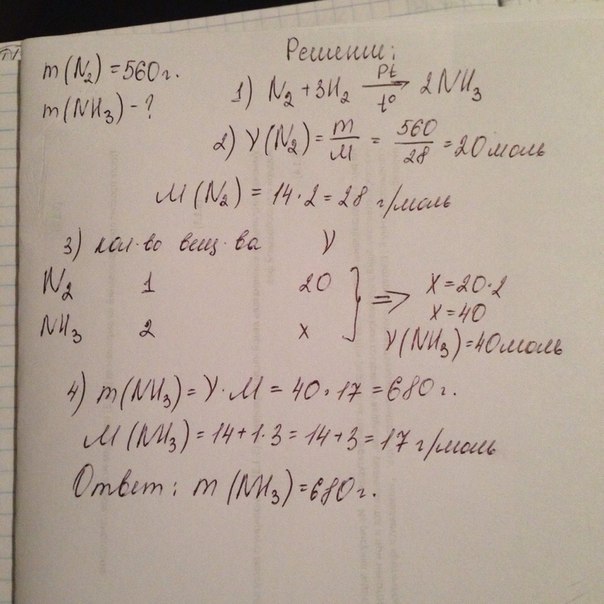 Решение:
m(N₂) = 560 г.
m(NH₃) - ?
1) N₂ + 3H₂ \xrightarrow[t°]{Pt} 2NH₃
2) γ(N₂) = m/M = 560/28 = 20 моль
M(N₂) = 14·2 = 28 г/моль
3) кол-во вещ-ва γ
N₂ 1 20
NH₃ 2 x
} => x = 20·2
x = 40
γ(NH₃) = 40 моль
4) m(NH₃) = γ·M = 40·17 = 680 г.
M(NH₃) = 14+1·3 = 14+3 = 17 г/моль
Ответ: m(NH₃) = 680 г.